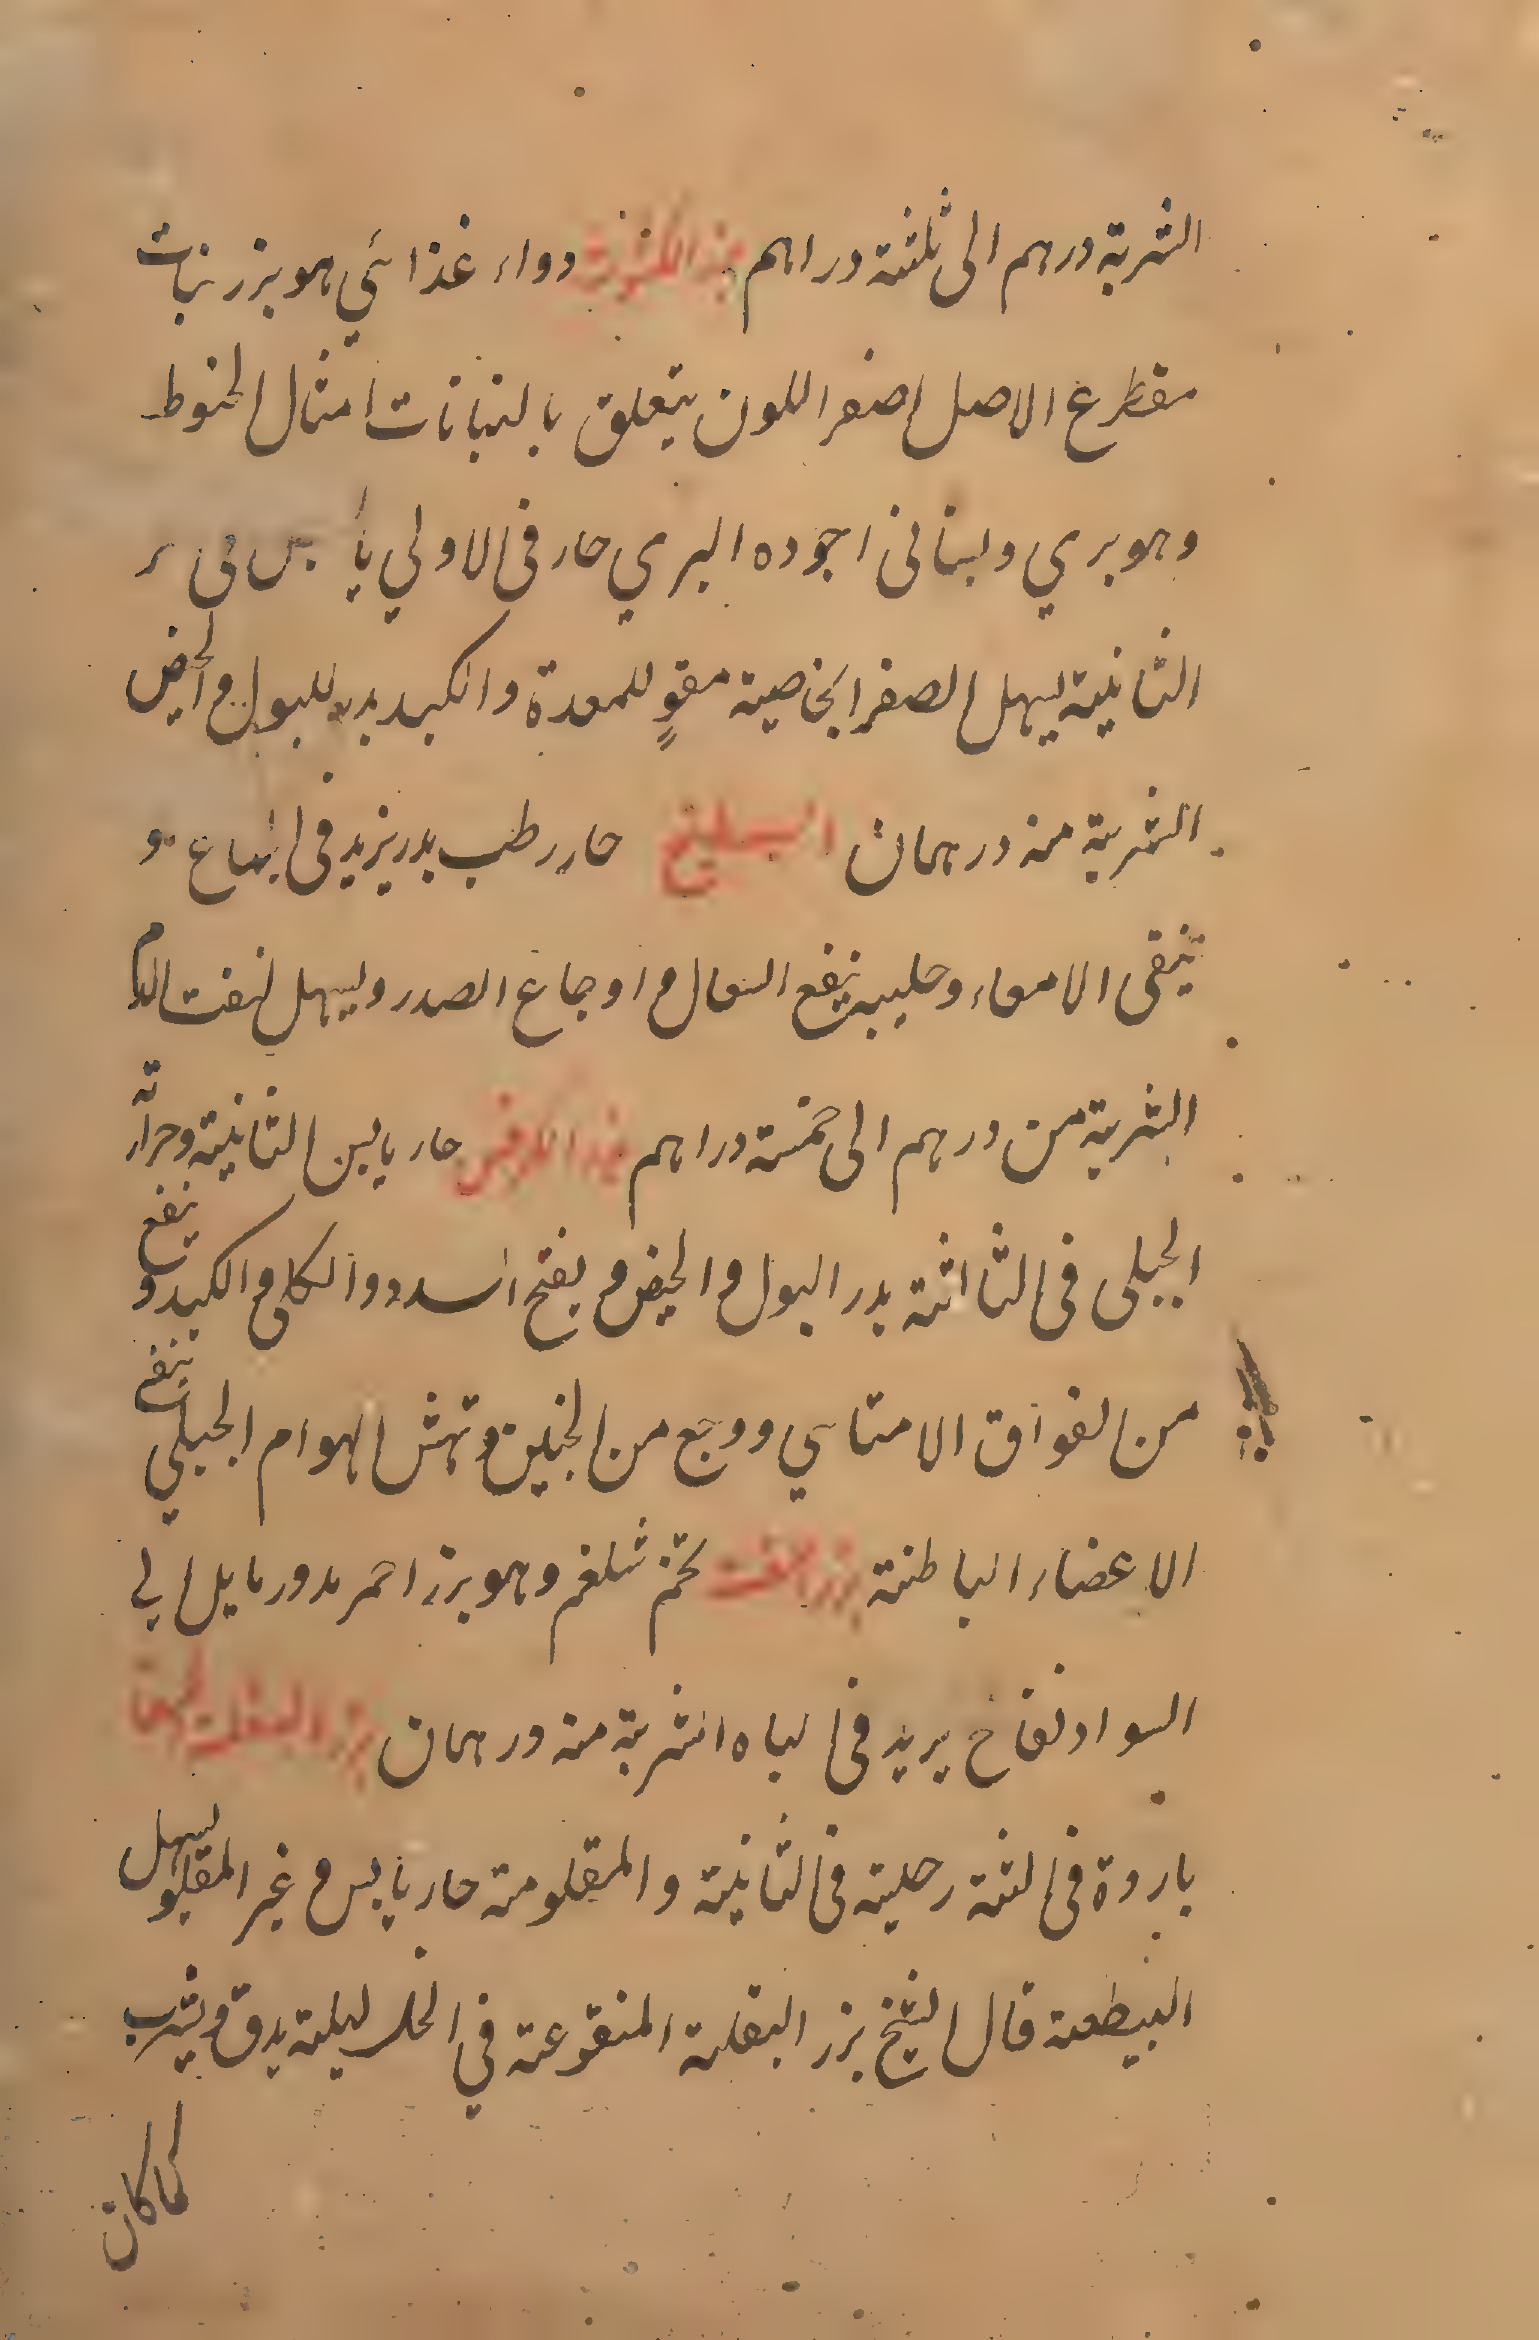 الشربة درهم الى ثلثة دراهم بزر الكشوث دواء غذائي هو بزر نبات
مقطرع الاصل اصفر اللون يتعلق بالنباتات امثال الخيوط
وهو بري وبستاني اجوده البري حار في الاولي يابس في
الثانية يسهل الصفرا بخاصية مقوٍ للمعدة والكبد يدر للبول والحيض
الشربة منه درهمان حار رطب يدر يزيد في و
ينقى الامعاء وحليبه ينفع السعال و اوجاع الصدر ويسهل نفث الدم
الشربة من درهم الى خمسة دراهم بزر الكرفس حار يابس الثانية وحرارته
الجبلى في الثالثة يدر البول و الحيض و يفتح السدد و الكلى و الكبد و ينفع
من الفواق الامتلاسي ووجع من الجنبين ونهش الهوام الجبلي ينفع
الاعضاء الباطنة بزر اللفت تخم شلغم وهو بزر احمر مدور مايل الي
السواد نفاخ يريد في الباه الشربة منه درهمان بزر البقلة الحمقا
باروة في الثثة رطبة في الثانية والمقلومة حار يابس و غير المقلو يسهل
البيطعة قال الشيخ بزر البقلة المنقوعة في الخل ليلة يدق و يشرب
كما كان